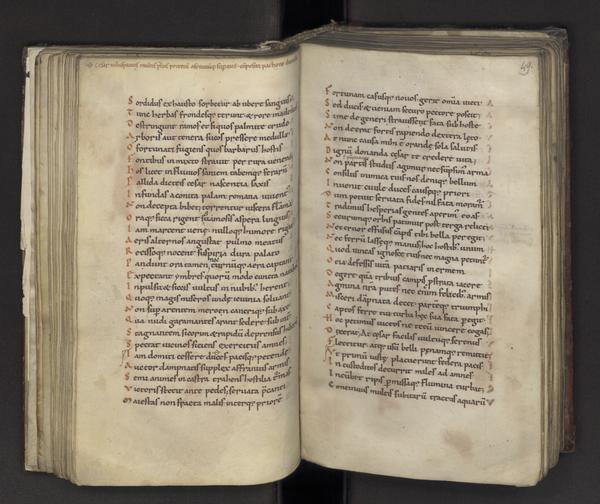 Sordidus exhausto sorbetur ab ubere sanguis
Tunc herbas frondesq; terunt & rore
Destringunt ramos et siquos palmite crudo
Arboris aut tenera sucos pressere medulla
O fortunati fugiens quos barbarus hostis
Fontibus inmixto stravit per rura veneno
Hos licet in fluvios saniem tabemq; ferarum
Pallida dicteis cesar nascentia saxis
Infundas aconita palam romana iuvent
Non decepta bibet torrentur viscera flamma
Oraq; sicca rigent squamosis aspera linguis
Iam marcent vene nulloq; humore
Aeris alternos angustat pulmo meatus
Rescissoq; nocent suspiria dura palato
Pandunt ora tamen aera captant
Expectant ymbres quorū modo cuncta
Inpulsu & siccis vultus in nubib; herent
Quoq; magis miseros unde ieiunia solvant
Non sup arentem meroen cancriq; sub axe
Qua nudi garamantes arant sedere
Stagnantem sicorim & rapidū deprensus
Spectat vicinos sitiens exercitus amnes
Iam domiti cessere duces pacisq; petende
Auctor dampnatis supplex affranius armis
Semi animes in castra trahens hostilia
Victoris stetit ante pedes servata pcanti
Maiestas non fracta malis interq; priorē
49
Fortunam casusq; novos gerit omia victi
Sed ducis & veniam securo pectore poscit
Si me degeneri stravissent fata sub hoste
Non deerat fortis rapiendo dextera leto
At nunc causa mihi ē orande sola salutis
Dignū donanda cesar te credere vita
Non partis studiis agimur nec sumpsim arma
Consiliis inimica tuis nos deniq; bellum
Invenit civile duces causeq; priori
Dum potuit servata fides nil fata moram
Tradimus hesperias gentes aperim eoas
Securumq; orbis patimur post terga relicti
Nec cruor effusus campis tibi bella peregit
Nec ferrū lassęq; manus hoc hostib; unum
Quod vincas ignosce tuis nec magna petunt
Otia defessis vitā patiaris inermem
Degere quā tribuis campis pstrata iacere
Agmina nra putes nec enim felicib; armis
Misceri dāpnata decet partēq; triumphi
Captos ferre tui turba hęc sua fata pegit
Hoc petimus victos ne tecū vincere cogas
Dixerat At cesar facilis vultuq; serenus
Flectitur atq; usū belli penamq; remittit
Ut primū iustę placuerunt federa pacis
Incustoditos decurrit miles ad amnes
Incūbit ripis pmissaq; flumina turbat
Continuus multis subitarū tractus aquarū